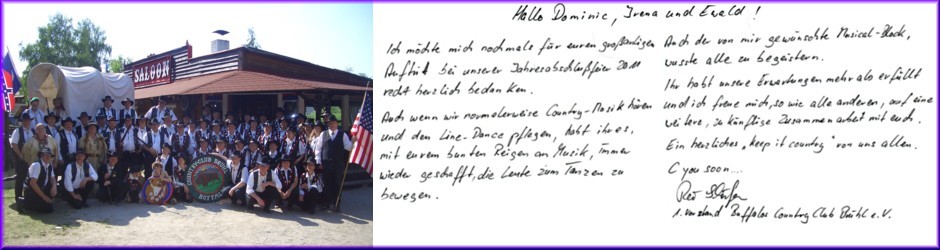 SALOON
Hallo Dominic, Irena und Ewald!
Ich möchte mich nochmals für euren großartigen
Auftritt bei unserer Jahresabschlußfeier 2011
recht herzlich bedanken.
Auch wenn wir normalerweise Country-Musik hören
und den Line-Dance pflegen, habt ihr es,
mit eurem bunten Reigen an Musik, immer
wieder geschafft, die Leute zum Tanzen zu
bewegen.
Auch der von mir gewünschte Musical-Block,
wusste alle zu begeistern.
Ihr habt unsere Erwartungen mehr als erfüllt
und ich freue mich, so wie alle anderen, auf eine
weitere, zukünftige Zusammenarbeit mit euch.
Ein herzliches "keep it country" von uns allen.
C you soon....
1. Vorstand Buffalos Country Club Brühl e.V.